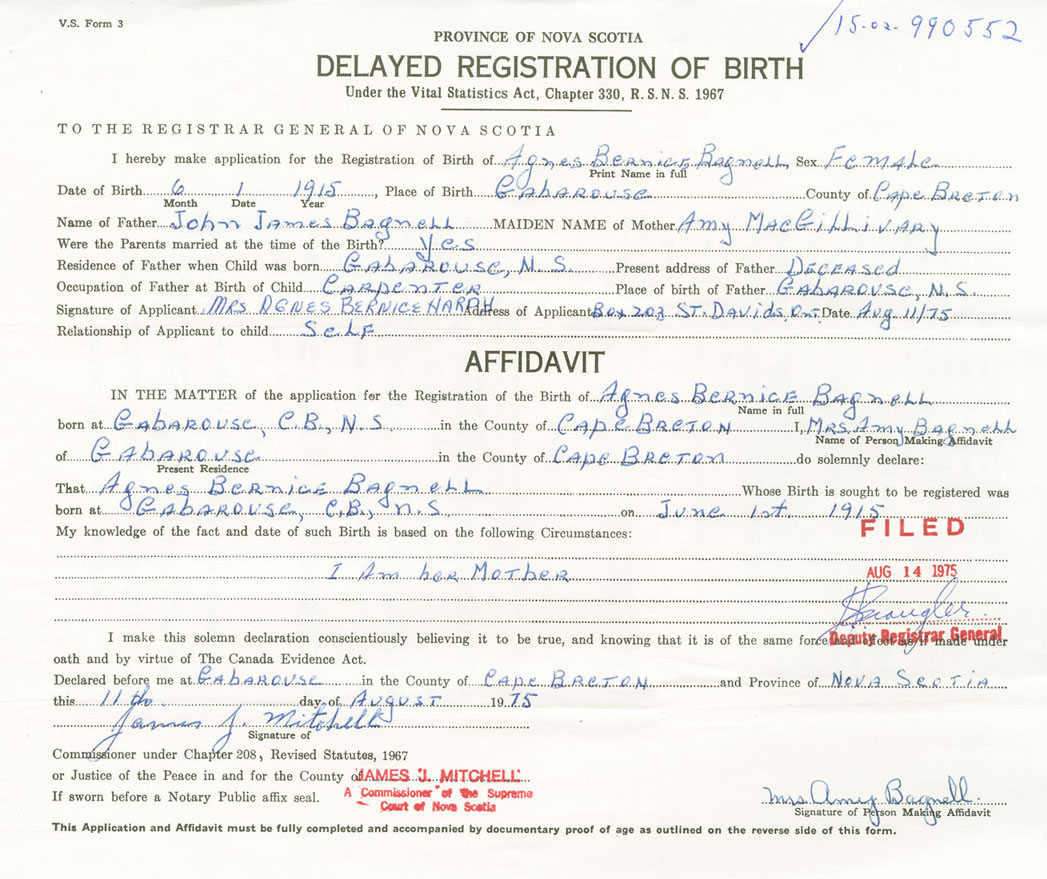 V.S. Form 3
15-02-990552
PROVINCE OF NOVA SCOTIA
DELAYED REGISTRATION OF BIRTH
Under the Vital Statistics Act, Chapter 330, R.S.N.S. 1967
TO THE REGISTRAR GENERAL OF NOVA SCOTIA
I hereby make application for the Registration of Birth of Agnes Bernice Bagnell Sex Female
Print Name in full
Date of Birth 6 1 1915, Place of Birth Gabarouse County of Cape Breton
Month Date Year
Name of Father John James Bagnell MAIDEN NAME of Mother Amy MacGillivary
Were the Parents married at the time of the Birth? Yes
Residence of Father when Child was born Gabarouse, N.S. Present address of Father Deceased
Occupation of Father at Birth of Child Carpenter Place of birth of Father Gabarouse, N.S.
Signature of Applicant Mrs Agnes Bernice Harah Address of Applicant Box 203 St. Davids, Ont. Date Aug 11/75
Relationship of Applicant to child Self
AFFIDAVIT
IN THE MATTER of the application for the Registration of the Birth of Agnes Bernice Bagnell
Name in full
born at Gabarouse, C.B., N.S. in the County of Cape Breton I, Mrs Amy Bagnell
Name of Person Making Affidavit
of Gabarouse in the County of Cape Breton do solemnly declare:
Present Residence
That Agnes Bernice Bagnell Whose Birth is sought to be registered was
born at Gabarouse, C.B., N.S. on June 1st. 1915
My knowledge of the fact and date of such Birth is based on the following Circumstances:
FILED
I Am her Mother
AUG 14 1975
I make this solemn declaration conscientiously believing it to be true, and knowing that it is of the same force and effect as if made under
Deputy Registrar General
oath and by virtue of The Canada Evidence Act.
Declared before me at Gabarouse in the County of Cape Breton and Province of Nova Scotia
this 11th day of August 1975
James J. Mitchell
Signature of
Commissioner under Chapter 208, Revised Statutes, 1967
or Justice of the Peace in and for the County of JAMES J. MITCHELL
A Commissioner of the Supreme
Court of Nova Scotia
If sworn before a Notary Public affix seal.
Mrs Amy Bagnell.
Signature of Person Making Affidavit
This Application and Affidavit must be fully completed and accompanied by documentary proof of age as outlined on the reverse side of this form.